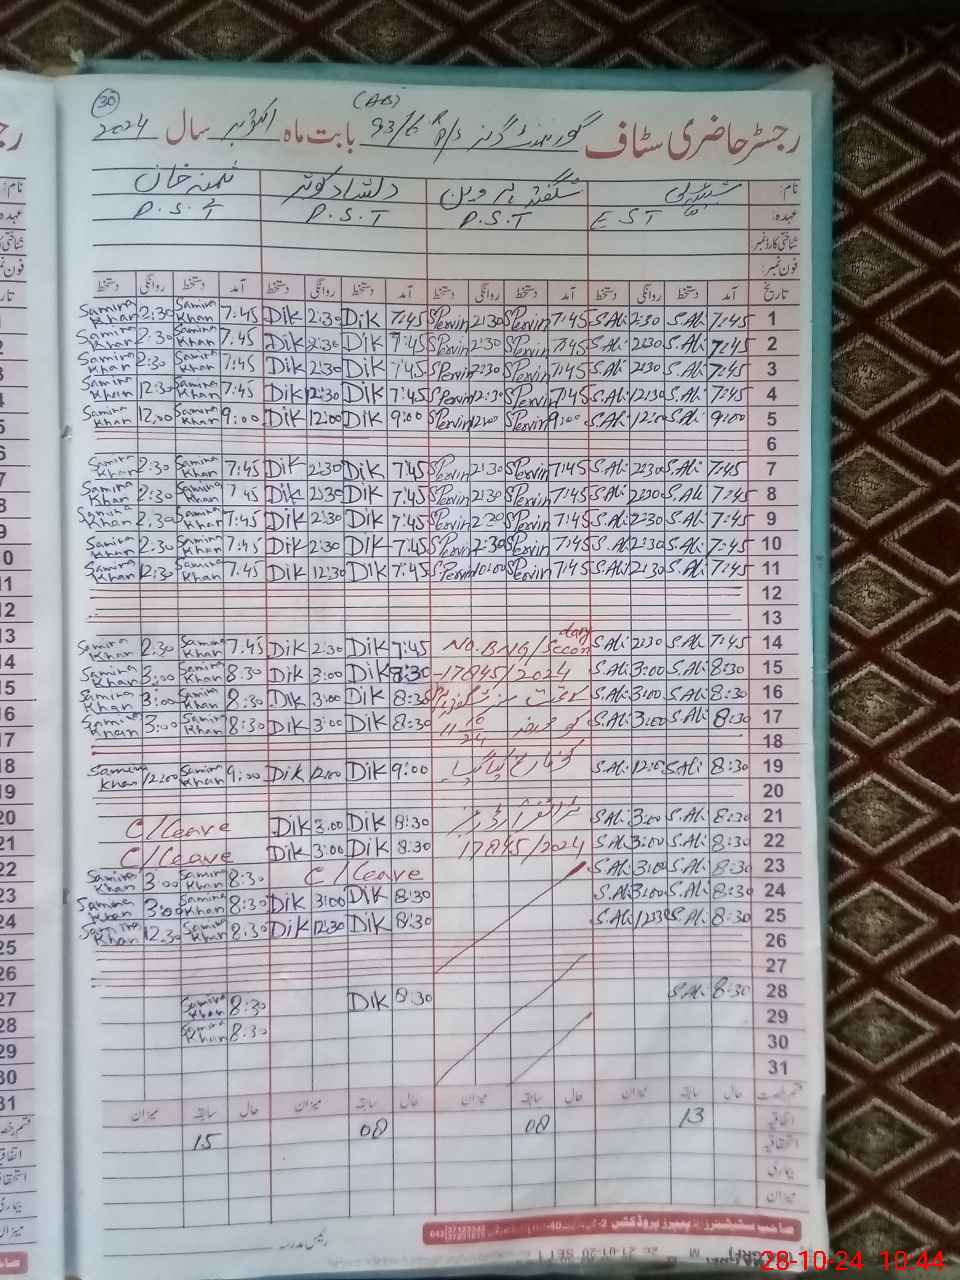 30
(AB)
رجسٹر حاضری سٹاف گورنمنٹ گرلز 93/6 بابت ماہ اکتوبر سال 2024
نام: شگفتہ پروین دلشاد کوثر ثمینہ خان
عہدہ: E.S.T P.S.T P.S.T P.S.T
شناختی کارڈ نمبر
فون نمبر:
تاریخ آمد دستخط روانگی دستخط آمد دستخط روانگی دستخط آمد دستخط روانگی دستخط آمد دستخط روانگی دستخط
1 7:45 S.Ali 2:30 S.Ali 7:45 SPervin 2:30 SPervin 7:45 Dik 2:30 Dik 7:45 Samina Khan 2:30 Samina Khan
2 7:45 S.Ali 2:30 S.Ali 7:45 SPervin 2:30 SPervin 7:45 Dik 2:30 Dik 7:45 Samina Khan 2:30 Samina Khan
3 7:45 S.Ali 2:30 S.Ali 7:45 SPervin 2:30 SPervin 7:45 Dik 2:30 Dik 7:45 Samina Khan 2:30 Samina Khan
4 7:45 S.Ali 12:30 S.Ali 7:45 SPervin 12:30 SPervin 7:45 Dik 12:30 Dik 7:45 Samina Khan 12:30 Samina Khan
5 9:00 S.Ali 12:00 S.Ali 9:00 SPervin 12:00 SPervin 9:00 Dik 12:00 Dik 9:00 Samina Khan 12:00 Samina Khan
6
7 7:45 S.Ali 2:30 S.Ali 7:45 SPervin 2:30 SPervin 7:45 Dik 2:30 Dik 7:45 Samina Khan 2:30 Samina Khan
8 7:45 S.Ali 2:30 S.Ali 7:45 SPervin 2:30 SPervin 7:45 Dik 2:30 Dik 7:45 Samina Khan 2:30 Samina Khan
9 7:45 S.Ali 2:30 S.Ali 7:45 SPervin 2:30 SPervin 7:45 Dik 2:30 Dik 7:45 Samina Khan 2:30 Samina Khan
10 7:45 S.Ali 2:30 S.Ali 7:45 SPervin 2:30 SPervin 7:45 Dik 2:30 Dik 7:45 Samina Khan 2:30 Samina Khan
11 7:45 S.Ali 12:30 S.Ali 7:45 SPervin 10:00 SPervin 7:45 Dik 12:30 Dik 7:45 Samina Khan 12:30 Samina Khan
12
13
14 7:45 S.Ali 2:30 S.Ali No. BNG/Secondary 7:45 Dik 2:30 Dik 7:45 Samina Khan 2:30 Samina Khan
15 8:30 S.Ali 3:00 S.Ali 17845/2024 8:30 Dik 3:00 Dik 8:30 Samina Khan 3:00 Samina Khan
16 8:30 S.Ali 3:00 S.Ali 8:30 Dik 3:00 Dik 8:30 Samina Khan 3:00 Samina Khan
17 8:30 S.Ali 3:00 S.Ali 8:30 Dik 3:00 Dik 8:30 Samina Khan 3:00 Samina Khan
18
19 8:30 S.Ali 12:00 S.Ali 9:00 Dik 12:00 Dik 9:00 Samina Khan 12:00 Samina Khan
20
21 8:30 S.Ali 3:00 S.Ali 8:30 Dik 3:00 Dik C/leave
22 8:30 S.Ali 3:00 S.Ali 17845/2024 8:30 Dik 3:00 Dik C/leave
23 8:30 S.Ali 3:00 S.Ali C/leave 8:30 Samina Khan 3:00 Samina Khan
24 8:30 S.Ali 3:00 S.Ali 8:30 Dik 3:00 Dik 8:30 Samina Khan 3:00 Samina Khan
25 8:30 S.Ali 12:30 S.Ali 8:30 Dik 12:30 Dik 8:30 Samina Khan 12:30 Samina Khan
26
27
28 8:30 S.Ali 8:30 Dik 8:30 Samina Khan
29 8:30 Samina Khan
30
31
حال سابقہ میزان حال سابقہ میزان حال سابقہ میزان حال سابقہ میزان
اتفاقیہ 13 08 08 15
استحقاقیہ
بیماری
میزان
رئیس مدرسہ
28-10-24 10:44